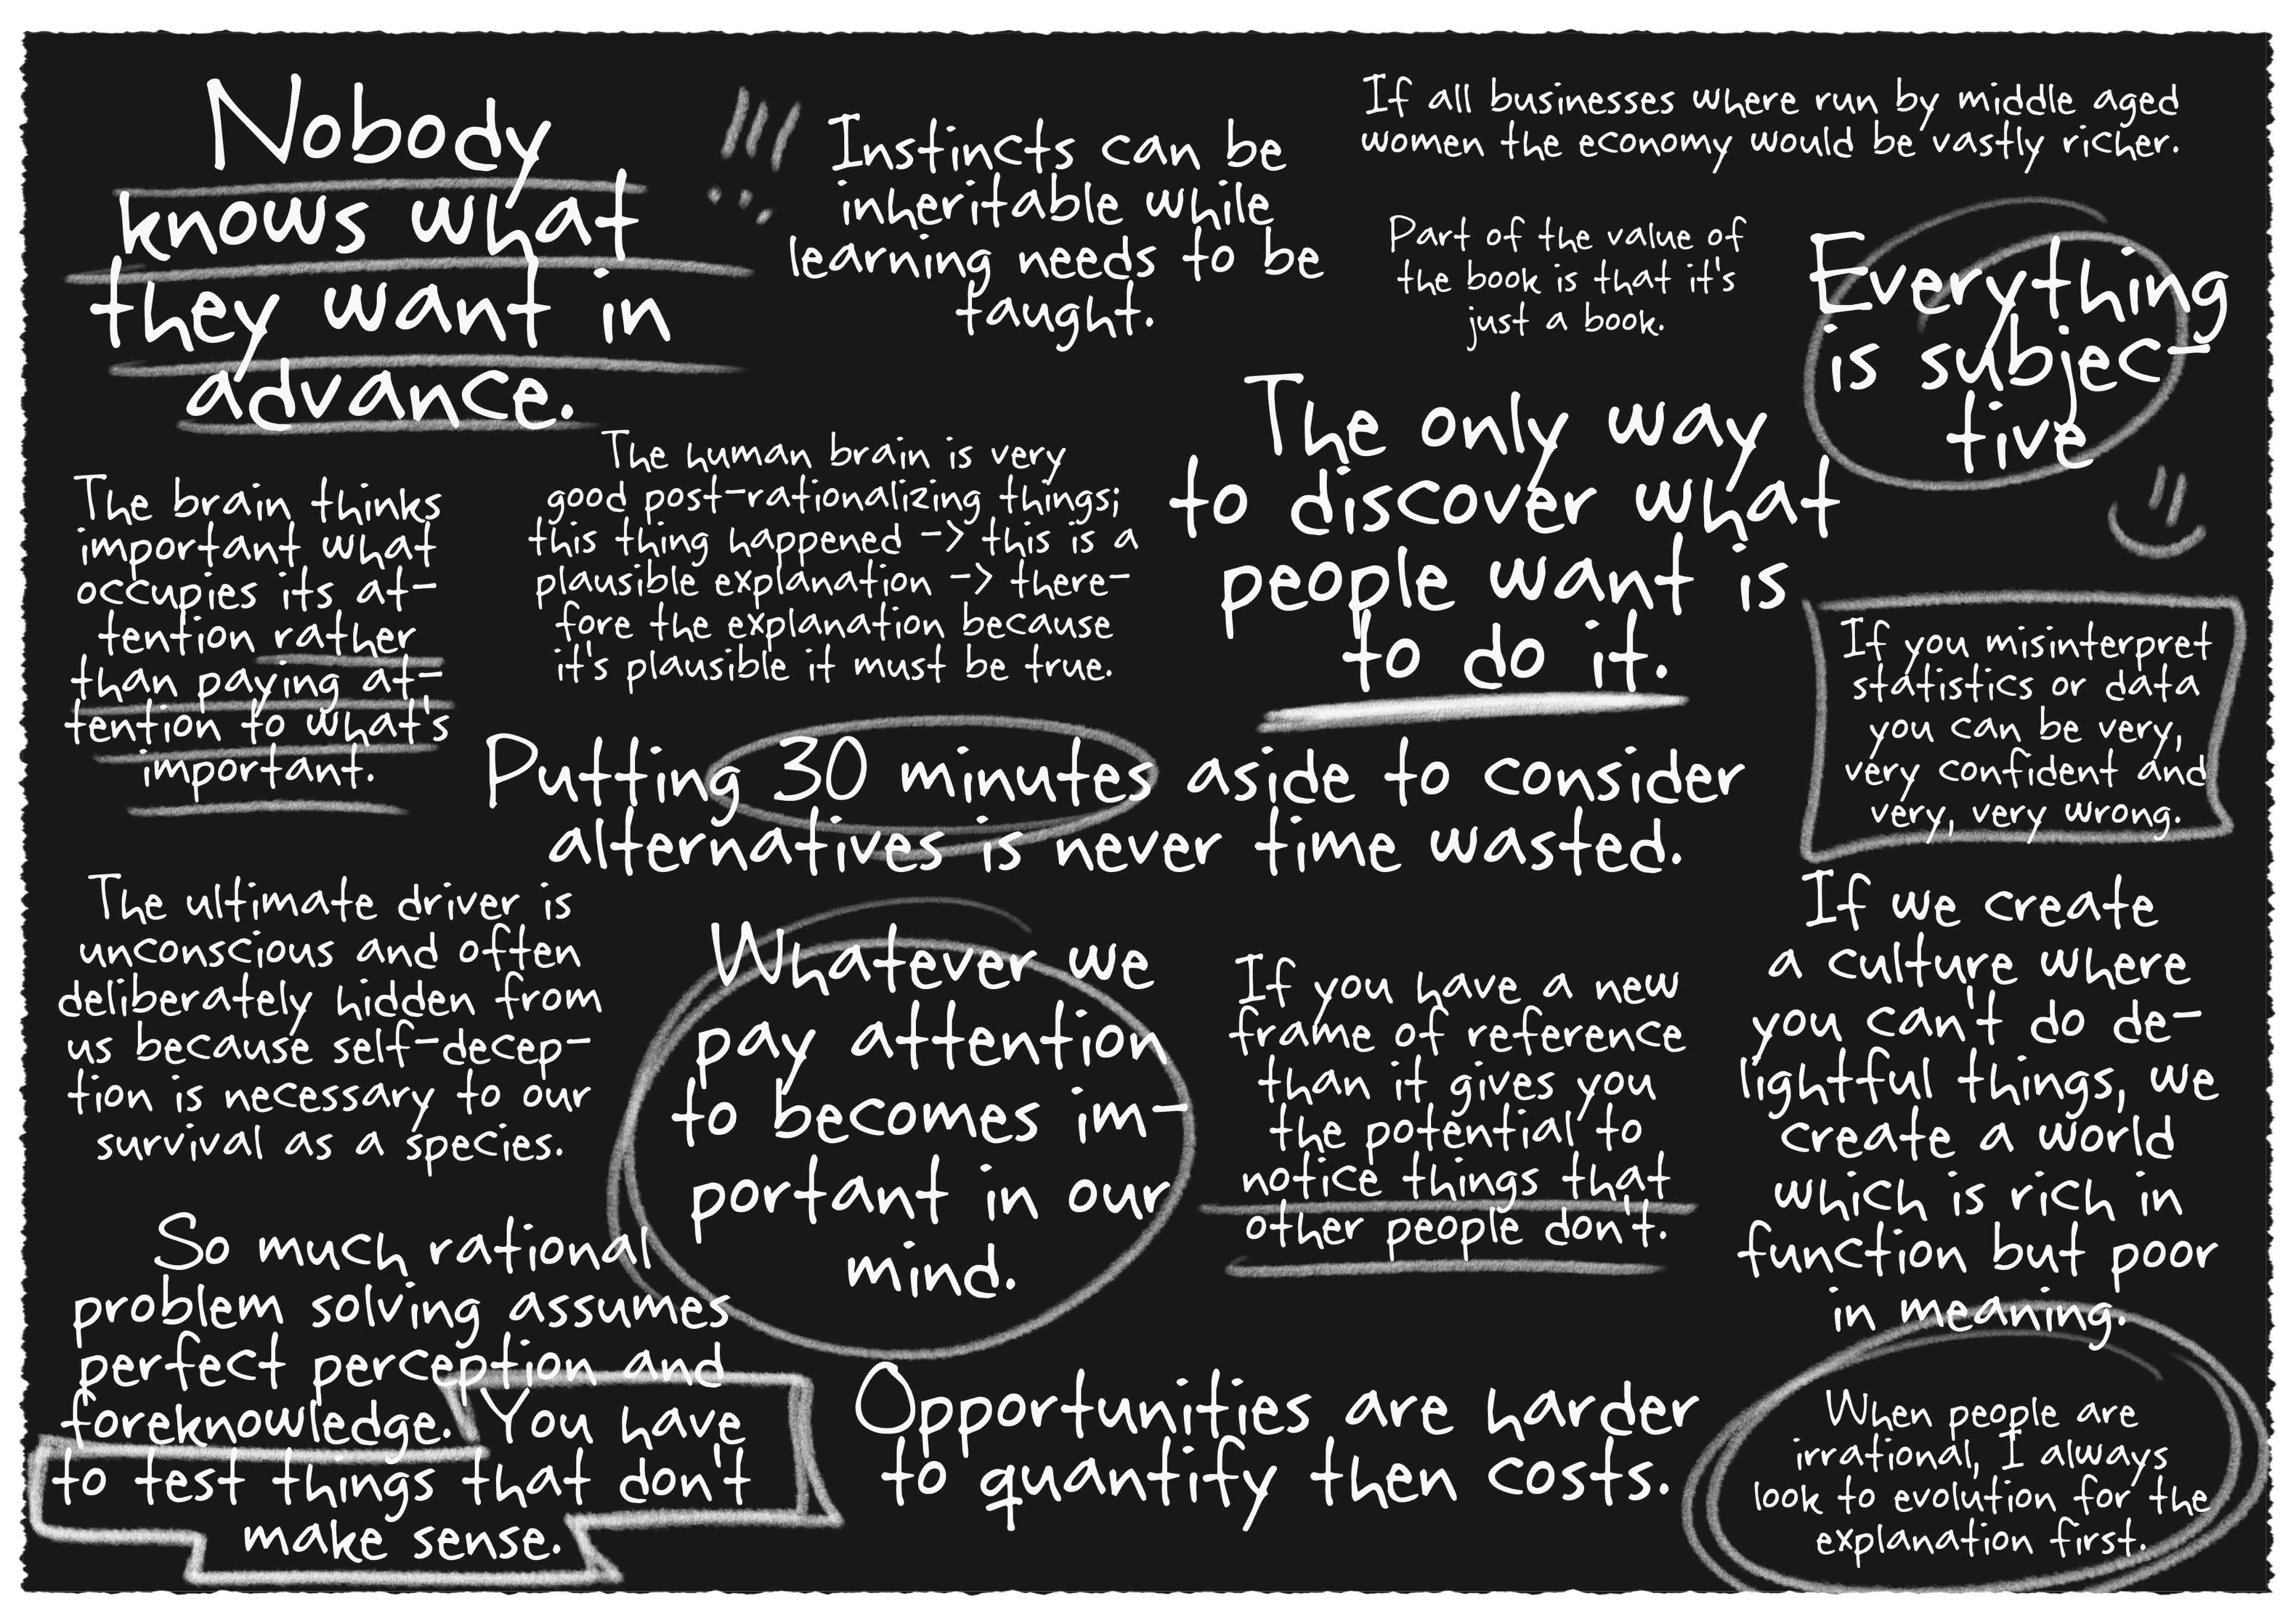 Nobody
knows what
they want in
advance.
Instincts can be
inheritable while
learning needs to be
taught.
If all businesses where run by middle aged
women the economy would be vastly richer.
Part of the value of
the book is that it's
just a book.
Everything
is subjec-
tive
The brain thinks
important what
occupies its at-
tention rather
than paying at-
tention to what's
important.
The human brain is very
good post-rationalizing things;
this thing happened -> this is a
plausible explanation -> there-
fore the explanation because
it's plausible it must be true.
The only way
to discover what
people want is
to do it.
If you misinterpret
statistics or data
you can be very,
very confident and
very, very wrong.
Putting 30 minutes aside to consider
alternatives is never time wasted.
The ultimate driver is
unconscious and often
deliberately hidden from
us because self-decep-
tion is necessary to our
survival as a species.
Whatever we
pay attention
to becomes im-
portant in our
mind.
If you have a new
frame of reference
than it gives you
the potential to
notice things that
other people don't.
If we create
a culture where
you can't do de-
lightful things, we
create a world
which is rich in
function but poor
in meaning.
So much rational
problem solving assumes
perfect perception and
foreknowledge. You have
to test things that don't
make sense.
Opportunities are harder
to quantify then costs.
When people are
irrational, I always
look to evolution for the
explanation first.